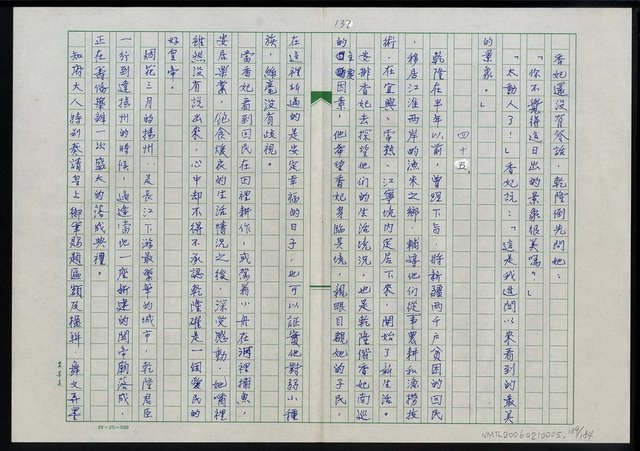 137
香妃還沒有答話，乾隆倒先問她：
「你不覺得這日出的景象很美嗎？」
「太動人了！」香妃説：「這是我進關以來看到的最美
的景象。」
四十五、
乾隆在半年以前，曾經下旨，將新疆兩千戶貧困的回民
，移居江淮兩岸的漁米之鄉，輔導他們從事農耕和漁撈技
術，在宜興、常熟、江寧境内定居下來，開始了新生活。
安排香妃去探望他們的生活境況，也是乾隆偕香妃南巡
的主要因素，他希望香妃身臨其境，親眼目覩她的子民，
在這裡所過的是安定幸福的日子，也可以証實他對弱小種
族，絲毫没有歧視。
當香妃看到回民在田裡耕作，或駕着小舟在河裡捕魚，
安居樂業，飽食煖衣的生活情況之後，深受感動，她嘴裡
雖然沒有説出來，心中却不得不承認乾隆確是一個愛民的
好皇帝。
烟花三月的揚州，是長江下游最繁華的城市，乾隆君臣
一行到達揚州的時候，適逢當地一座新建的關帝廟落成，
正在籌備舉辦一次盛大的落成典禮。
知府大人特别奏請皇上御筆賜題區額及楹聯，舞文弄墨
20×25=500
NMTL20060210005,139/184